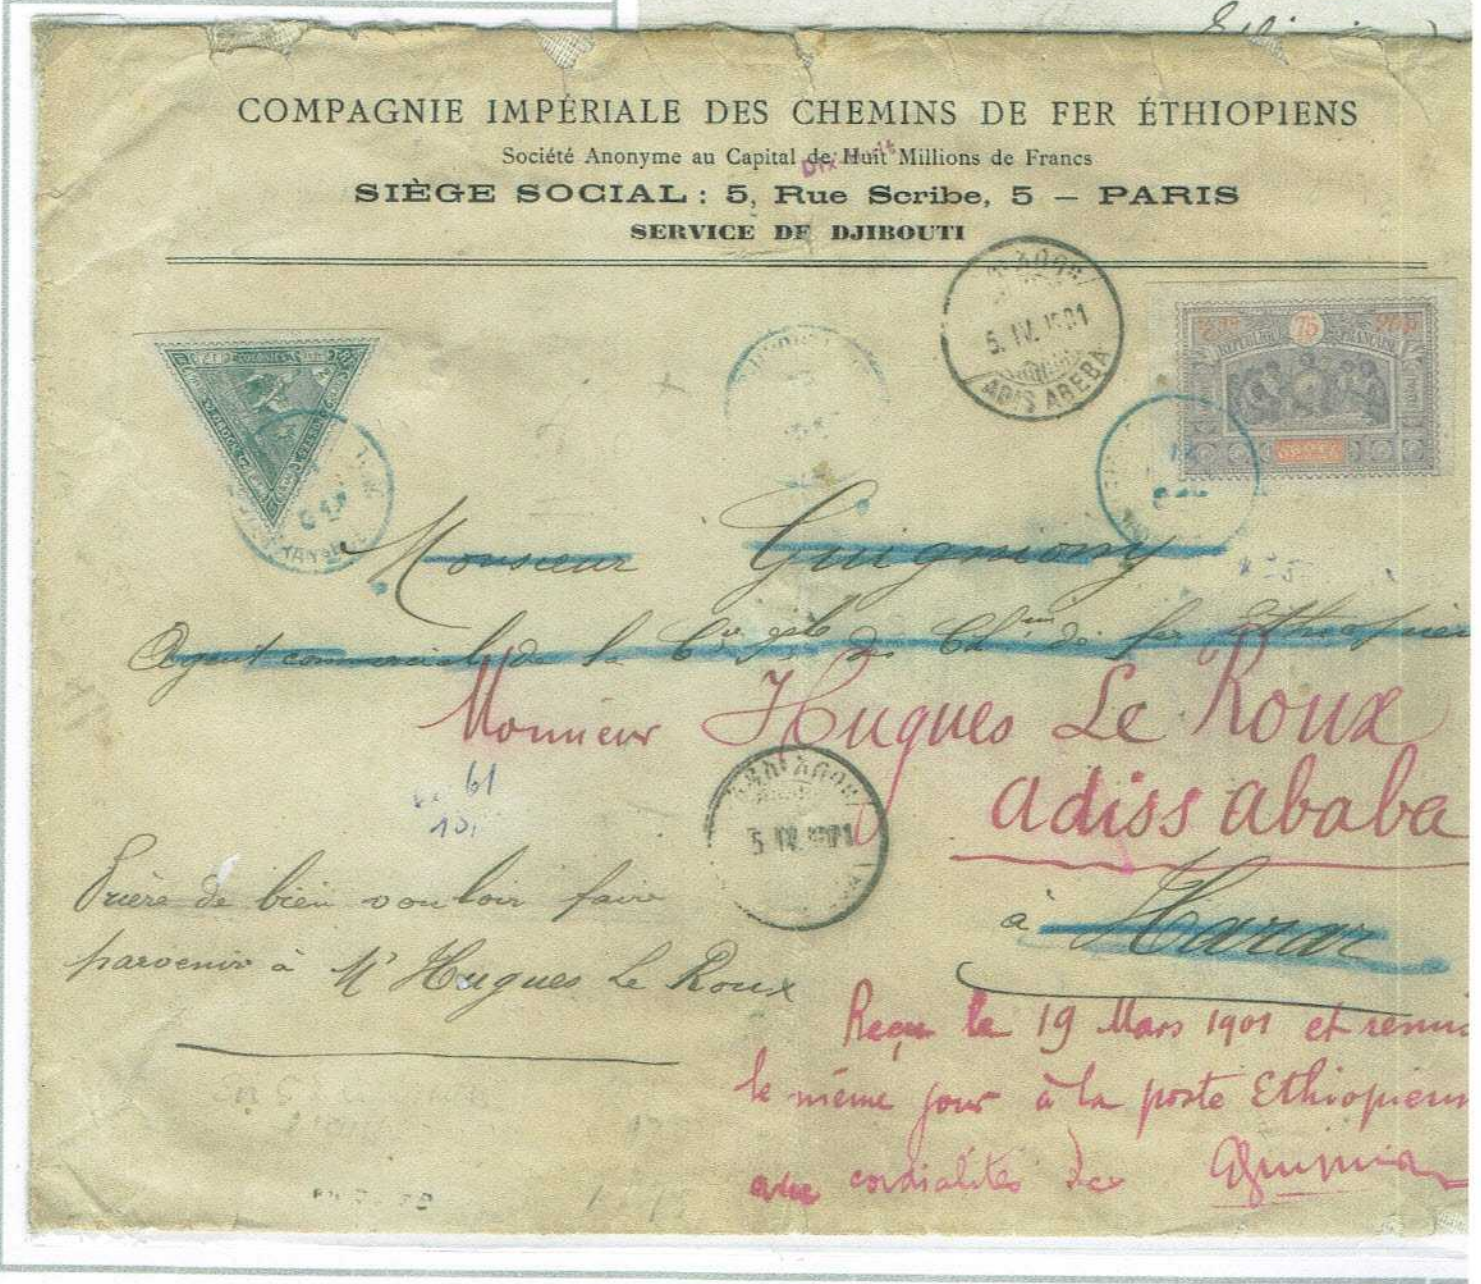 COMPAGNIE IMPÉRIALE DES CHEMINS DE FER ÉTHIOPIENS
Société Anonyme au Capital de Huit Millions de Francs
Dix-huit
SIÈGE SOCIAL : 5, Rue Scribe, 5 — PARIS
SERVICE DE DJIBOUTI
5. IV. 1901
ADIS ABEBA
75
RÉPUBLIQUE FRANÇAISE
OBOCK
Monsieur Guigniony
Agent commercial de la Cie Gle des Ch ins de fer Ethiopiens
Monsieur Hugues Le Roux
adiss ababa
61
10,
5 IV. 1901
à Harar
Prière de bien vouloir faire
parvenir à Mr Hugues Le Roux
Reçu le 19 Mars 1901 et remis
le même jour à la poste Ethiopienn
avec cordialités de